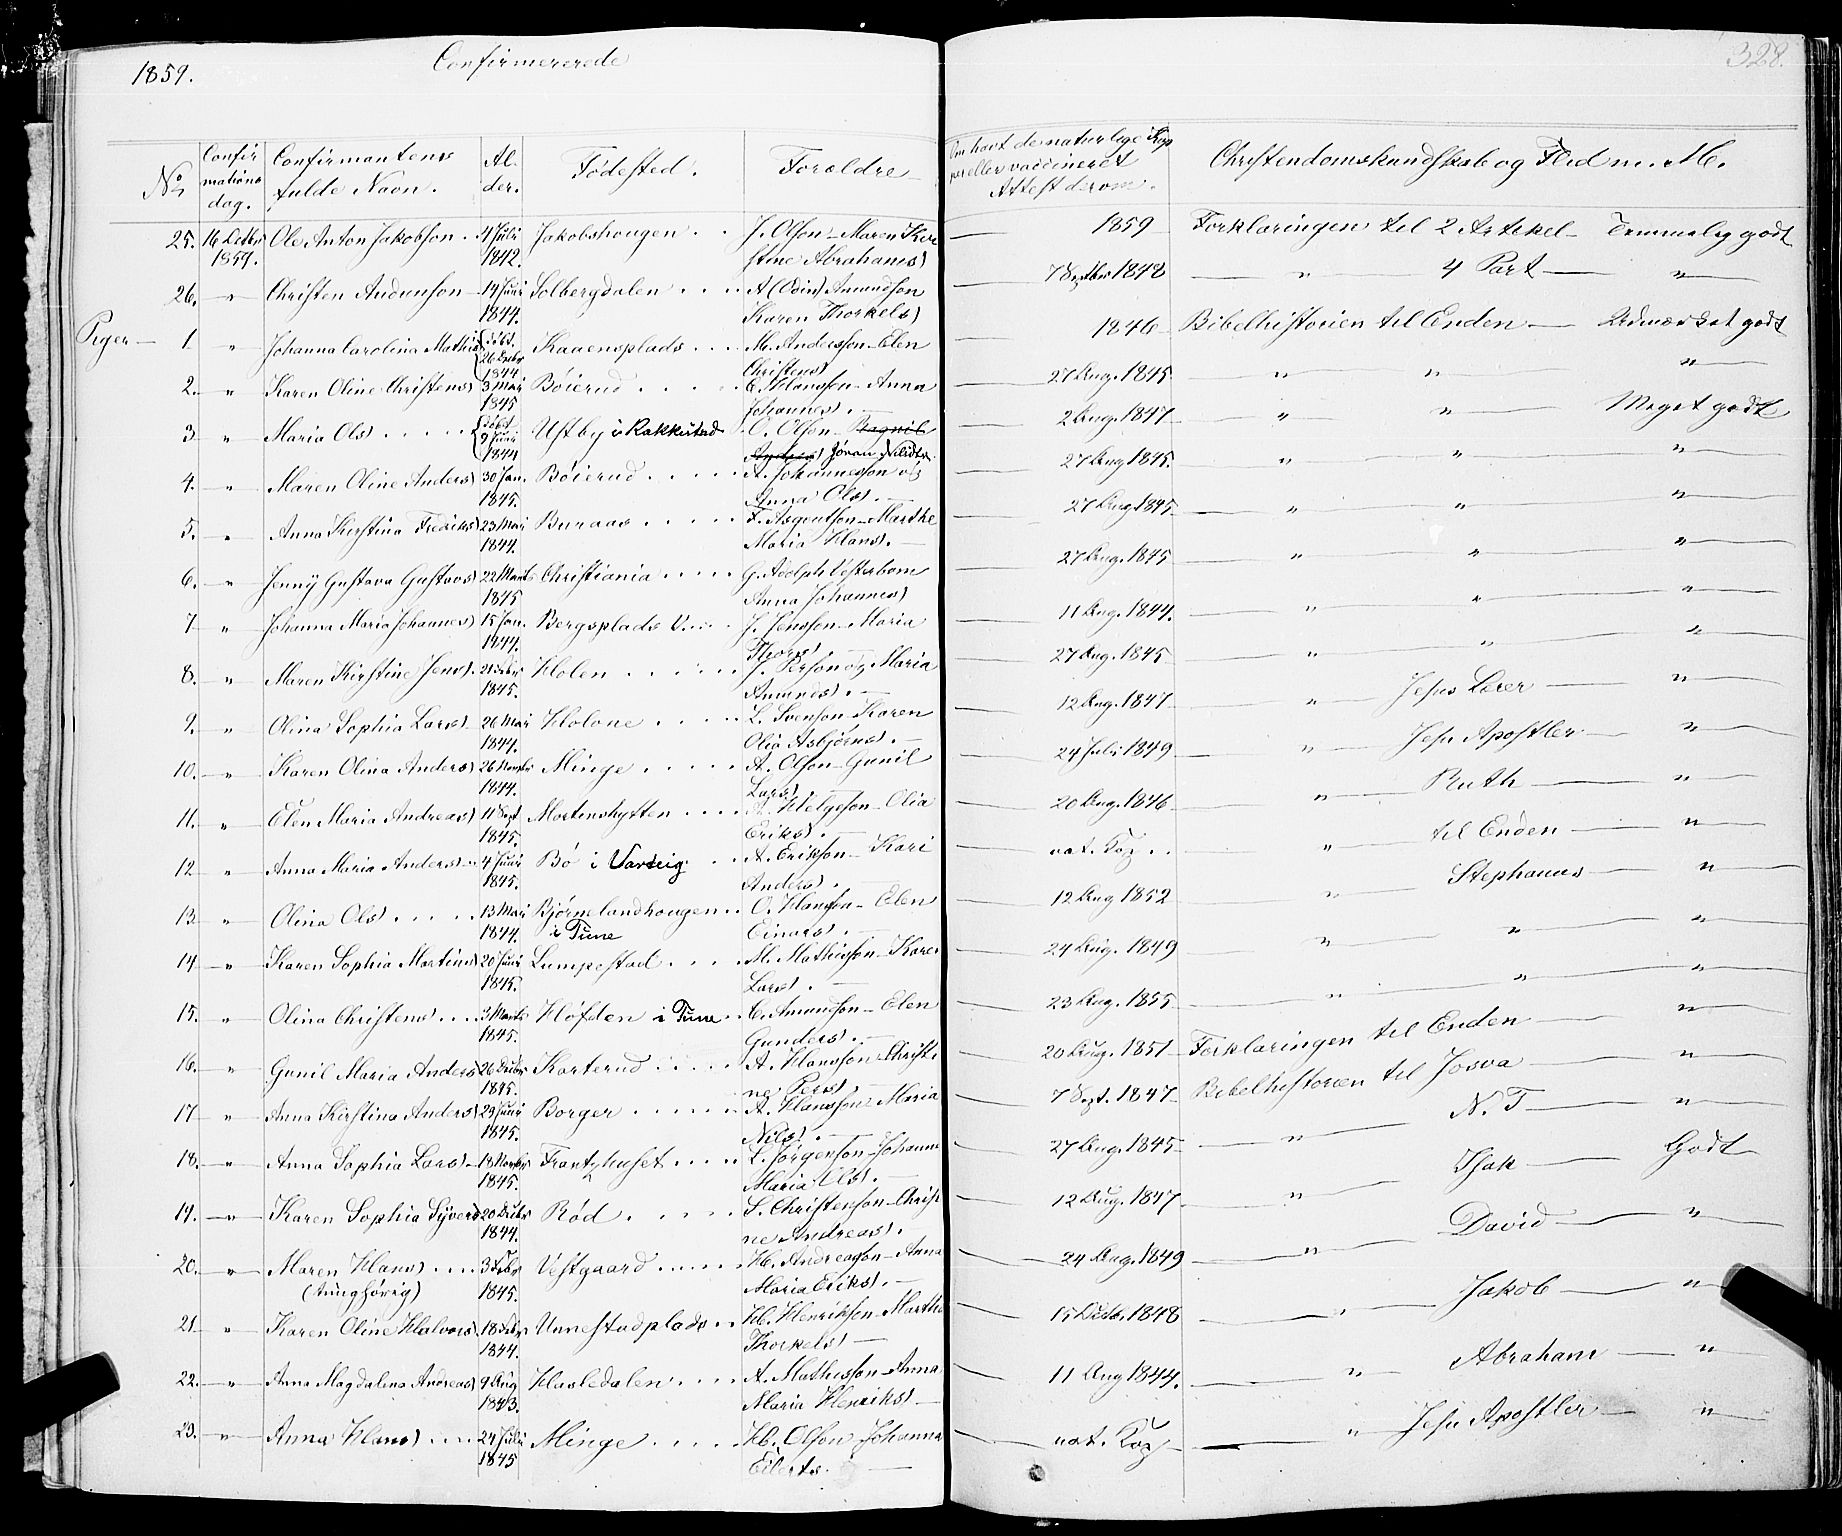 1859.
Confirmererede
328.
No
Confirmations dag.
Confirmantens fulde Navn.
Alder.
Fødested.
Forældre
Om havt de naturlige Kopper eller vaccineret Attest derom.
Christendomskundskab og Flid m. M.
25. 16 Octbr 1859. Ole Anton Jakobson. 4 Juli 1842. Jakobshougen . . J. Olson - Maren Kirstine Abrahams) — 1859 Forklaringen til 2 Artikel - Temmelig godt
26. " Christen Andunson 14 Juni 1844. Solbergdalen . . . . A. (Odin) Amundson Karen Thorkels) — 7 Septbr 1848 — " 4 Part — "
Piger — 1 " Johanna Carolina Mathis) døbt. 26 Decbr 1844 Kaaensplads . . . M. Andersson - Elen Christens) — 1846 Bibelhistorien til Enden — Udmærket godt
2. " Karen Oline Christens) 3 Mai 1845 Bøierud . . . . . C. Hansson - Anna Johannes). — 27 Aug. 1845 — " " — "
3 " Maria Ols) . . . . . døbt 9 Juni 1844 Ustby i Rakkestad O. Olson - Ragnil Anders) Jøran Nilsdtr. — 2 Aug. 1847 — " " Meget godt
4. " Maren Oline Anders) 30 Jan. 1845. Bøierud . . . . . A. Johannesson og Anna Ols). — 27 Aug 1845. — " " "
5. " Anna Kirstina Fredriks) 23 Mai 1844. Buraas . . . . . F. Asgoutson - Marthe Maria Hans). — 27 Aug 1845 — " " "
6. " Jenny Gustava Gustavs) 22 Marts 1845 Christiania . . . . . G. Adolph Vesterbom Anna Johannes) — 27 Aug. 1845 — " " "
7 " Johanna Maria Johannes) 15 Jan. 1844. Bergsplads V. . . . J. Jensson - Maria Thors) — 11 Aug. 1844. — " " "
8. " Maren Kirstine Jens). 21 Febr 1845. Holen . . . . . J. Person og Maria Amunds). — 27 Aug. 1845 — " " "
9. " Olina Sophia Lars). 26 Mai 1844. Holone . . . . . L. Svenson - Karen Olia Asbjørns). — 12 Aug. 1847 — " Jesus Lærer — "
10. " Karen Olina Anders) 26 Novbr 1844. Minge . . . . . A. Olson - Gunil Lars). — 24 Juli 1849 — " Jesu Apostler — "
11. " Elen Maria Andreas) 11 Sept 1845. Mortenshytten . . . . A. Helgeson - Olia Eriks). — 20 Aug. 1846 — " Ruth — "
12 " Anna Maria Anders) 4 Juni 1845. Bø i Varteig . . A. Erikson - Kari Anders). — nat. Kop . . " til Enden — "
13. " Olina Ols) . . . . . 13 Mai 1844. Bjørnelandhougen i Tune . . O. Hansson - Elen Einars). — 12 Aug 1852 — " Stephanus — "
14 " Karen Sophia Martins) 20 Juni 1845. Lumpestad . . . . M. Mathisson - Karen Lars). — 24 Aug. 1849 — " " "
15. " Olina Christens) . . . 3 Marts 1845. Høfden i Tune . . C. Amundson - Elen Gunders). — 23 Aug. 1855 — " " "
16. " Gunil Maria Anders) 26 Decbr 1845. Karterud . . . . . A. Hansson - Christine Pers). — 20 Aug. 1851 — Forklaringen til Enden — "
17 " Anna Kirstina Anders) 29 Juni 1845. Borger . . . . . A. Hansson - Maria Nils). — 7 Sept. 1847 Bibelhistorien til Josva — "
18. " Anna Sophia Lars) 18 Novbr 1845. Frantzhuset . . . . L. Jørgenson - Johanna Maria Ols). — 27 Aug. 1845 — " N. T — "
19. " Karen Sophia Syvers) 20 Decbr 1844. Rød . . . . . S. Christenson - Christine Andreas). — 12 Aug. 1847. — " Isak — Godt
20. " Maren Hans) . . . . (tunghørig) 3 Febr 1845. Vestgaard . . . . . H. Andreasson - Anna Maria Eriks). — 24 Aug. 1849 — " David — "
21 " Karen Oline Halvors) 18 Febr 1844. Unnestadplads . . H. Henrikson - Martha Thorkels) — 15 Decbr. 1848 — " Jakob — "
22. " Anna Magdalena Andreas) 9 Aug 1843. Hasledalen . . . . A. Mathisson - Anna Maria Henriks) — 11 Aug 1844. — " Abraham — "
23. " Anna Hans) . . . . 24 Juli 1845 Minge . . . . . H. Olson - Johanna Eilerts. — nat. Kop — " Jesu Apostler — "